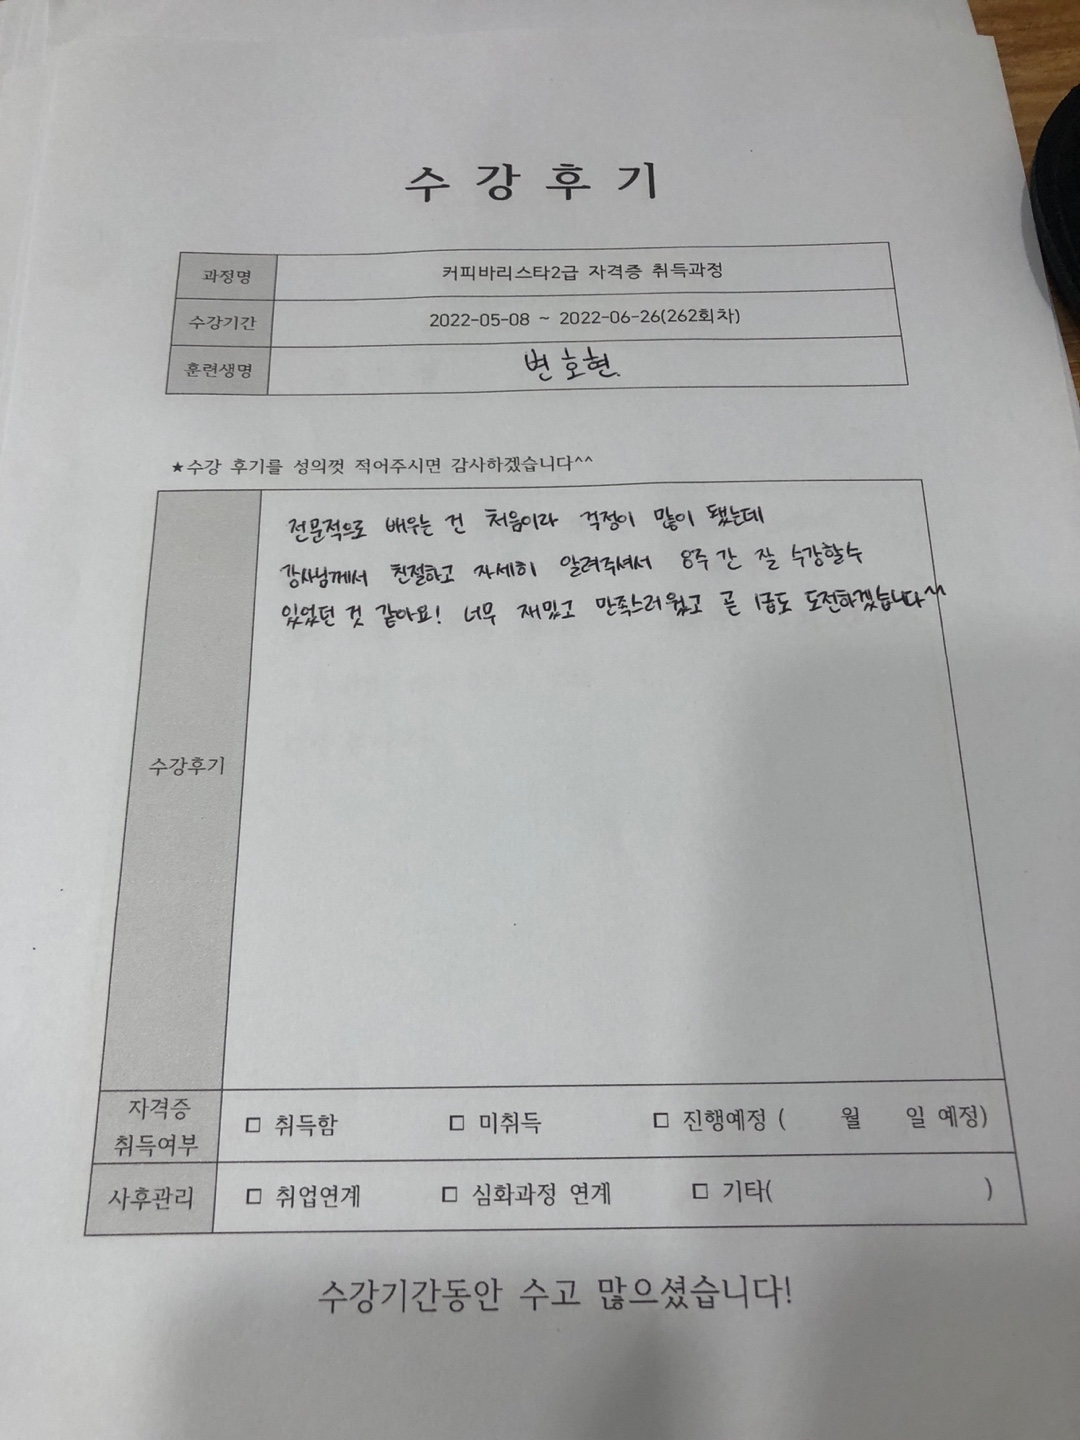 수강후기
과정명 커피바리스타2급 자격증 취득과정
수강기간 2022-05-08 ~ 2022-06-26(262회차)
훈련생명 변호현
★수강 후기를 성의껏 적어주시면 감사하겠습니다^^
전문적으로 배우는 건 처음이라 걱정이 많이 됐는데
강사님께서 친절하고 자세히 알려주셔서 8주간 잘 수강할수
있었던 것 같아요! 너무 재밌고 만족스러웠고 곧 1급도 도전하겠습니다^^
수강후기
자격증
취득여부 □ 취득함 □ 미취득 □ 진행예정 ( 월 일 예정)
사후관리 □ 취업연계 □ 심화과정 연계 □ 기타( )
수강기간동안 수고 많으셨습니다!